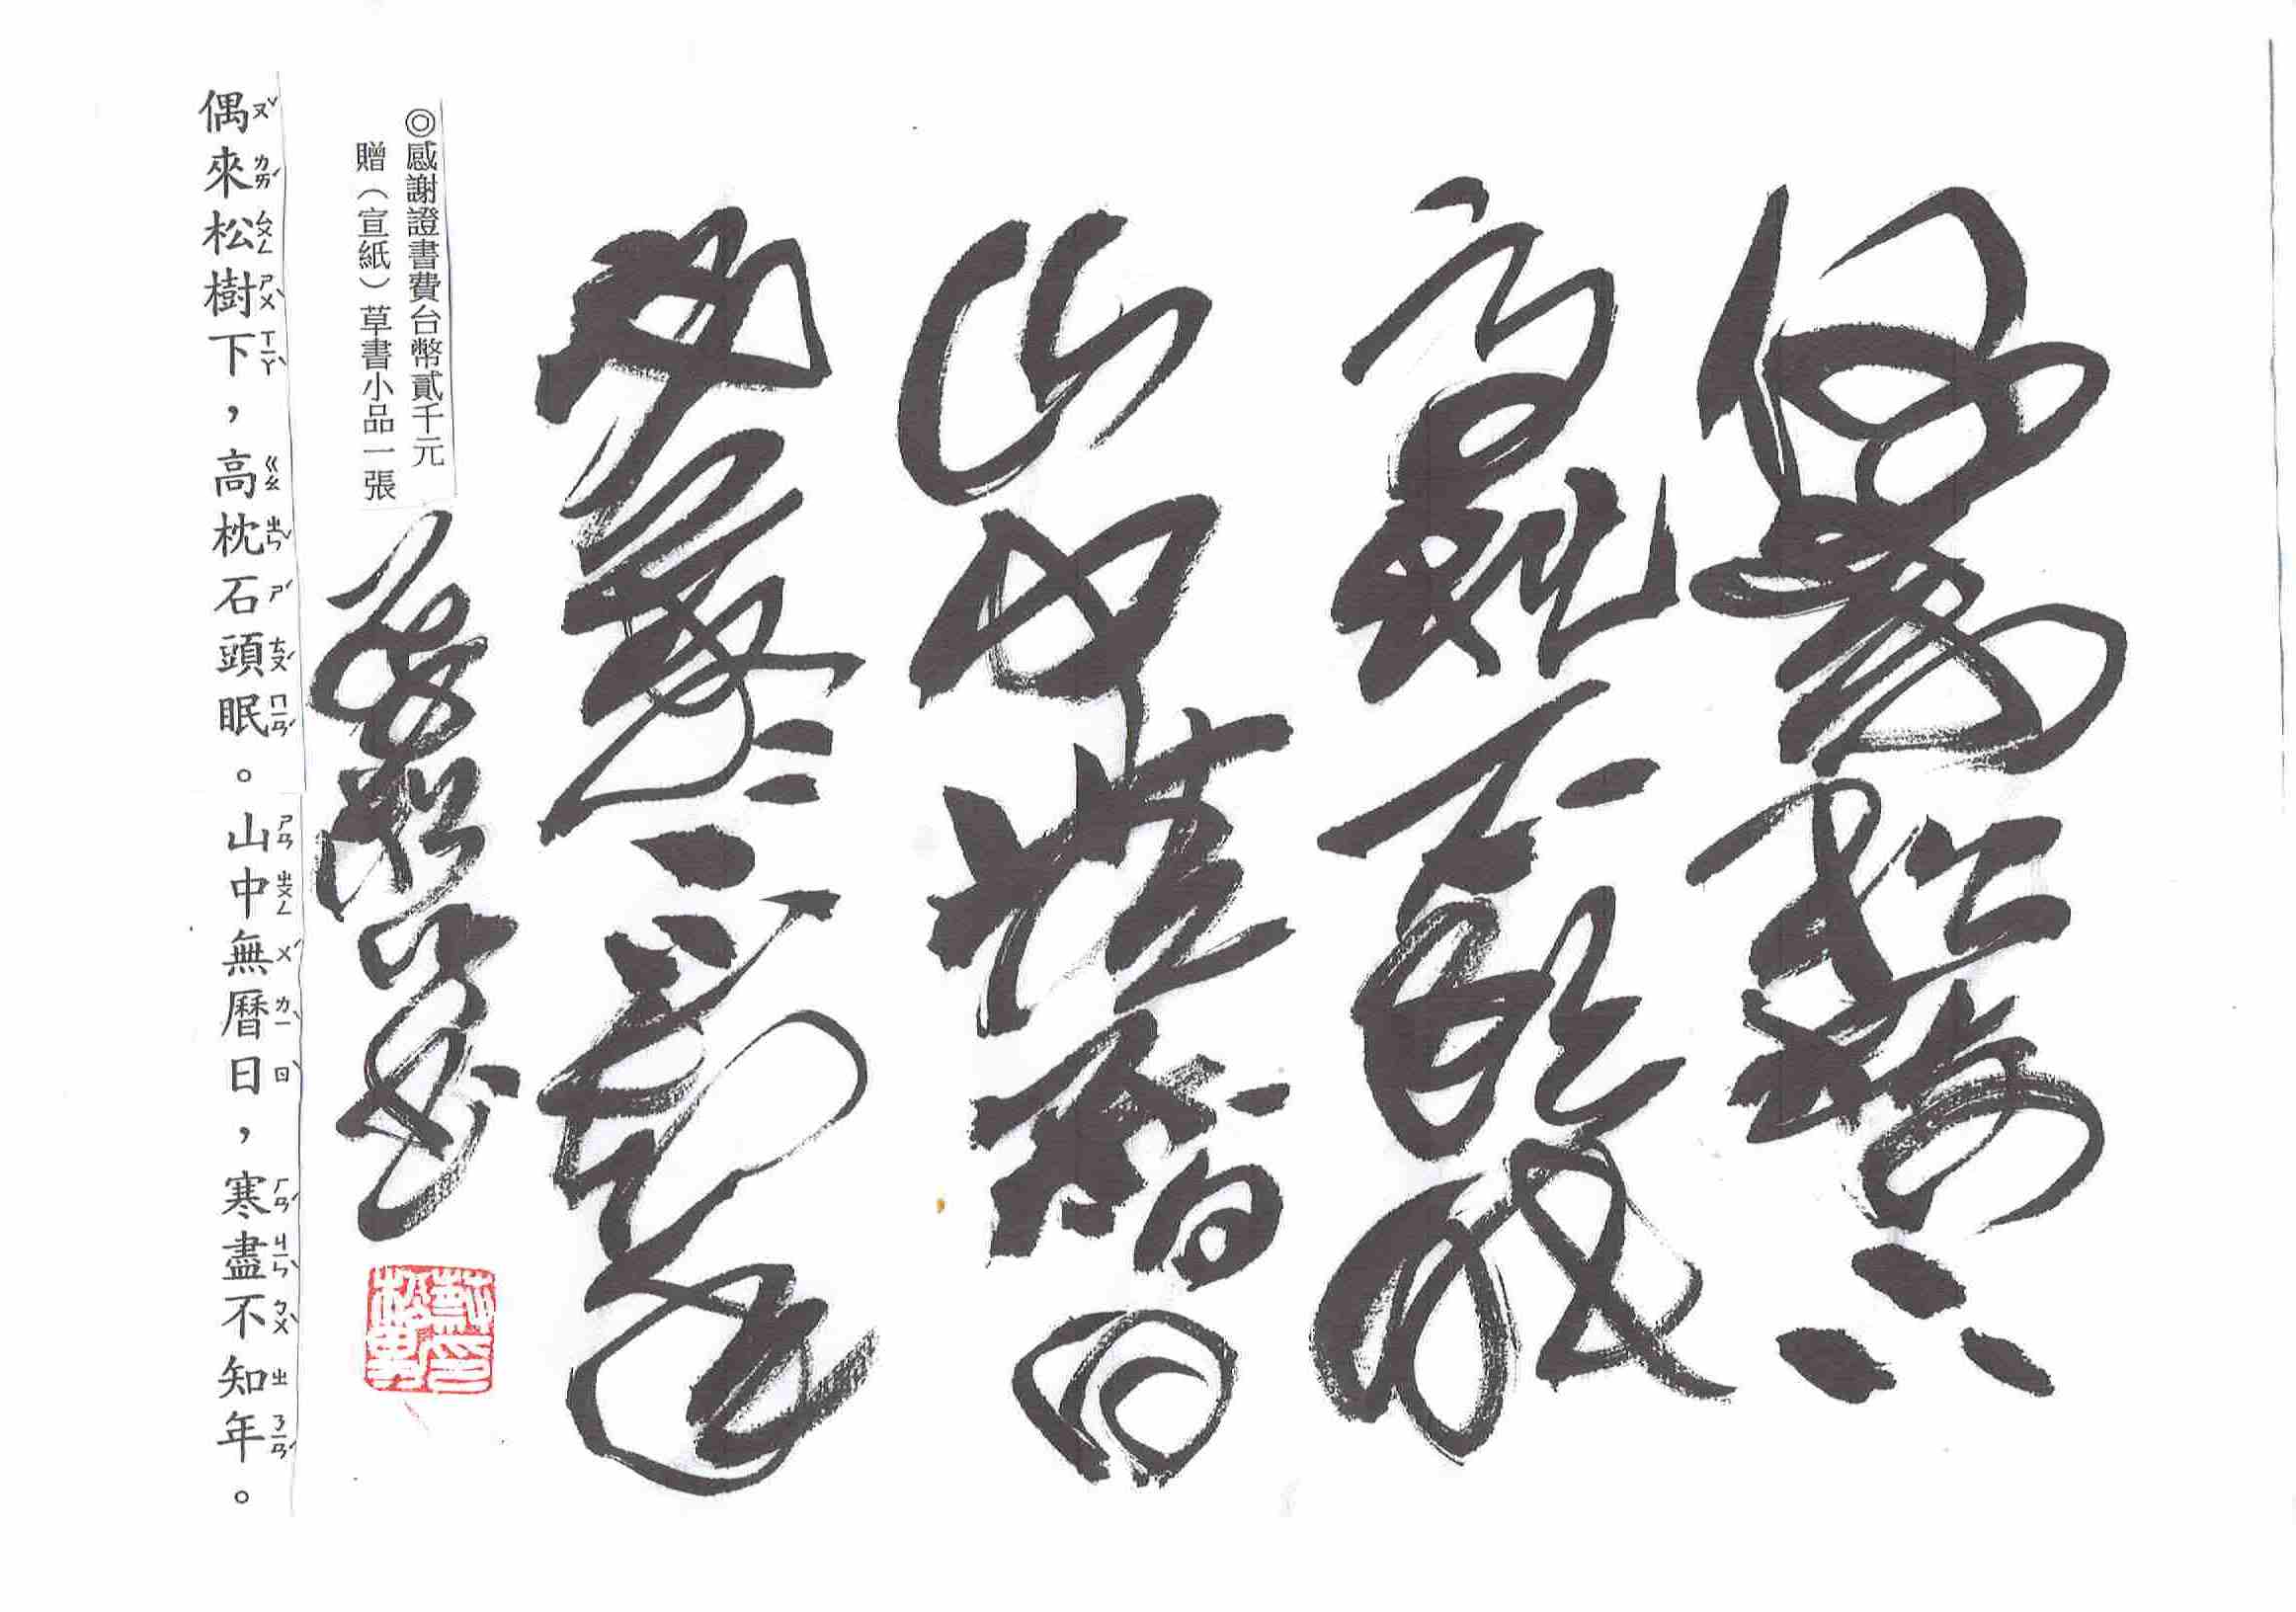 偶來松樹下
高枕石頭眠
山中無曆日
寒盡不知年
◎感謝證書費台幣貳千元
贈(宣紙)草書小品一張
偶來松樹下,高枕石頭眠。山中無曆日,寒盡不知年。